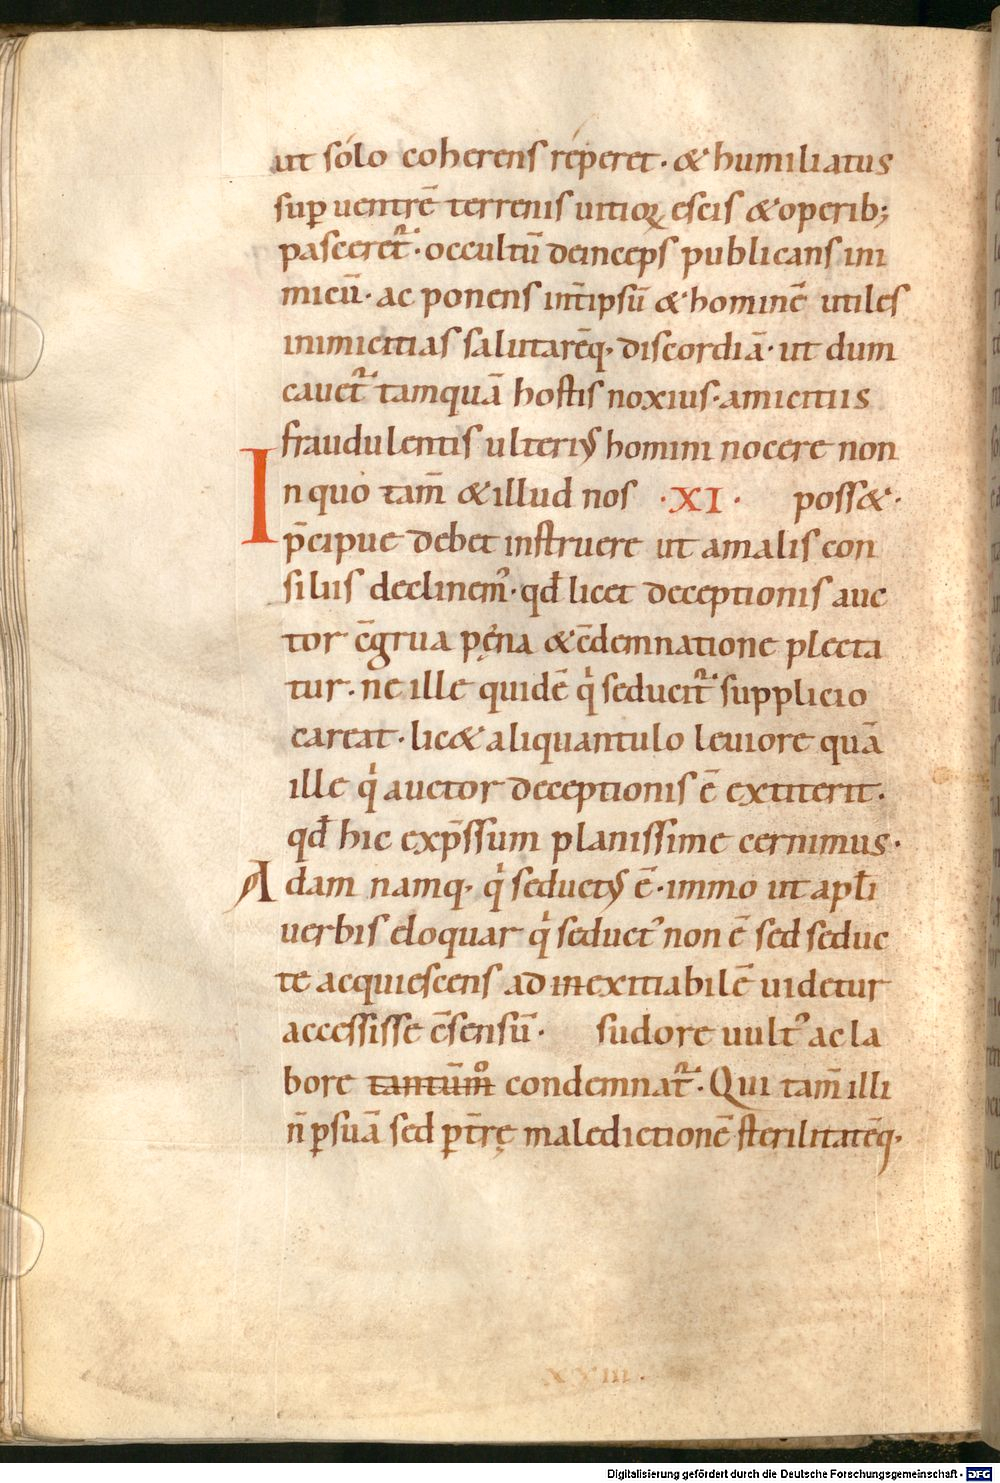 ut sólo coherens réperet. & humiliatus
suꝑ uentrē terrenis uitioꝝ escis & operib;
pasceret᷑. occultū deinceps publicans ini
micū. ac ponens int̄ ipsū & hominē utiles
inimicitias salutarēq. discordiā. ut dum
cauet᷑ tamquā hostis noxius. amicitiis
fraudulentis ulteriꝰ homini nocere non
In quo tam̄ & illud nos ·XI· poss&.
p̄cipue debet instruere ut a malis con
siliis declinemꝰ. qđ licet deceptionis auc
tor c̄grua pęna & c̄demnatione plecta
tur. ne ille quidē qͥ seducit᷑ supplicio
careat. lic& aliquantulo leuiore quā
ille qͥ auctor deceptionis ē extiterit.
qđ hic exp̄ssum planissime cernimus.
Adam namq. qͥ seductꝰ ē. immo ut apłi
uerbis eloquar qͥ seductꝰ non ē sed seduc
te acquiescens ad inexitiabilē uidetur
accessisse c̄sensū. sudore uultꝰ ac la
bore tantūm̊ condemnat᷑. Qui tam̄ illi
n̄ ꝑ suā sed ꝑ t̄rę maledictionē sterilitatēq.
XXIII.
Digitalisierung gefördert durch die Deutsche Forschungsgemeinschaft - DFG